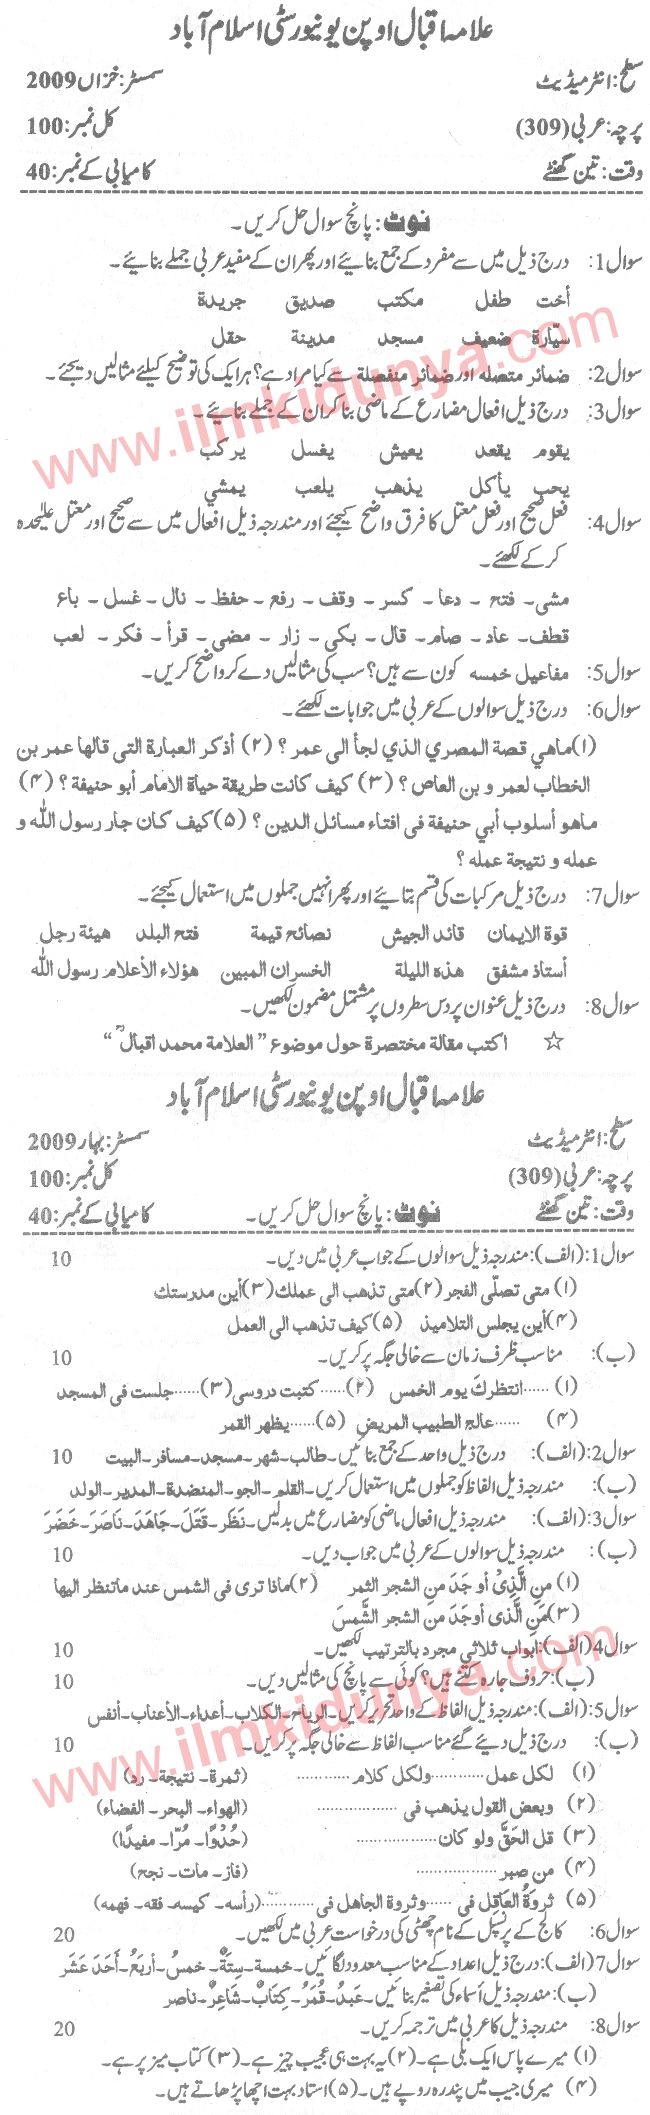 علامہ اقبال اوپن یونیورسٹی اسلام آباد
سطح: انٹرمیڈیٹ سمسٹر: خزاں 2009
پرچہ: عربی (309) کل نمبر: 100
وقت: تین گھنٹے کامیابی کے نمبر: 40
نوٹ: پانچ سوال حل کریں۔
سوال 1: درج ذیل میں سے مفرد کے جمع بنائیے اور پھر ان کے مفید عربی جملے بنائیے۔
أخت طفل مکتب صدیق جریدة
سیّارة ضعیف مسجد مدینة حقل
سوال 2: ضمائر متصلہ اور ضمائر منفصلة سے کیا مراد ہے؟ ہر ایک کی توضیح کیلئے مثالیں دیجئے۔
سوال 3: درج ذیل افعال مضارع کے ماضی بنا کر ان کے جملے بنائیے۔
یقوم یقعد یعیش یغسل یرکب
یحب یأکل یذهب یلعب یمشي
سوال 4: فعل صحیح اور فعل معتل کا فرق واضح کیجئے اور مندرجہ ذیل افعال میں سے صحیح اور معتل علیحدہ
کر کے لکھئے۔
مشی۔ فتح ۔ دعا ۔ کسر ۔ وقف ۔ رفع ۔ حفظ ۔ نال ۔ غسل ۔ باع
قطف۔ عاد ۔ صام۔ قال ۔ بکی ۔ زار ۔ مضی ۔ قرأ ۔ فکر ۔ لعب
سوال 5: مفاعیل خمسه کون سے ہیں؟ سب کی مثالیں دے کر واضح کریں۔
سوال 6: درج ذیل سوالوں کے عربی میں جوابات لکھئے۔
(۱)ماهي قصة المصري الذي لجأ الی عمر ؟ (۲) أذکر العبارة التی قالها عمر بن
الخطاب لعمر و بن العاص ؟ (۳) کیف کانت طریقة حیاة الامام أبو حنیفة ؟ (۴)
ماهو أسلوب أبي حنیفة فی افتاء مسائل الدین ؟ (۵)کیف کان جار رسول اللّٰه و
عمله و نتیجة عمله ؟
سوال 7: درج ذیل مرکبات کی قسم بتائیے اور پھر انہیں جملوں میں استعمال کیجئے۔
قوة الایمان قائد الجیش نصائح قیمة فتح البلد هیئة رجل
أستاذ مشفق هذه اللیلة الخسران المبین هؤلاء الأعلام رسول اللّٰه
سوال 8: درج ذیل عنوان پر دس سطروں پر مشتمل مضمون لکھیں۔
☆ اکتب مقالة مختصرة حول موضوع “ العلامة محمد اقبالؒ ”
علامہ اقبال اوپن یونیورسٹی اسلام آباد
سطح: انٹرمیڈیٹ سمسٹر: بہار 2009
پرچہ: عربی (309) کل نمبر: 100
وقت: تین گھنٹے نوٹ: پانچ سوال حل کریں۔ کامیابی کے نمبر: 40
سوال 1: (الف): مندرجہ ذیل سوالوں کے جواب عربی میں دیں۔ 10
(۱) متی تصلّی الفجر (۲)متی تذهب الی عملك (۳)أین مدرستك
(۴)أین یجلس التلامیذ (۵)کیف تذهب الی العمل
(ب): مناسب ظرف زمان سے خالی جگہ پر کریں۔ 10
(۱) ......انتظرك یوم الخمس (۲)...... کتبت دروسی (۳)......جلست فی المسجد
(۴) ......عالج الطبیب المریض (۵) ......یظهر القمر
سوال 2: (الف): درج ذیل واحد کے جمع بنائیں۔ طالب۔شهر۔مسجد۔مسافر۔البیت 10
(ب): مندرجہ ذیل الفاظ کو جملوں میں استعمال کریں۔ القلم۔الجو۔المنضدة۔المدیر۔الولد
سوال 3: (الف): مندرجہ ذیل افعال ماضی کو مضارع میں بدلیں۔ نَظَرَ۔قَتَلَ۔جَاهَدَ۔نَاصَرَ۔حَضَرَ
(ب): مندرجہ ذیل سوالوں کے عربی میں جواب دیں۔ 10
(۱) من الَّذِیْ أو جَدَ منِ الشجر الثمر (۲)ماذا تری فی الشمس عند ماتنظر الیها
(۳)مَنِ الَّذی أوجَدَ من الشجر الشَّمسَ
سوال 4(الف): ابواب ثلاثی مجرد بالترتیب لکھیں۔ 10
(ب): حروف جارہ کتنے ہیں؟ کوئی سے پانچ کی مثالیں دیں۔ 10
سوال 5: (الف): مندرجہ ذیل الفاظ کے واحد تحریر کریں۔ الریاح۔الکلاب۔أعداء۔الأعناب۔أنفس
(ب): درج ذیل دیئے گئے مناسب الفاظ سے خالی جگہ پر کریں۔ 10
(۱) لکل عمل ............ولکل کلام ............ (ثمرة۔ نتیجة۔ رد)
(۲) وبعض القول یذهب فی ................ (الهواء۔ البحر۔ الفضاء)
(۳) قل الحَقَّ ولو کان ................ (حُدْوًا۔ مُرًّا۔ مفیدًا)
(۴) من صبر ................ (فاز۔ مات۔ نجح)
(۵) ثروةُ العَاقِلِ فی ......وثروة الجاهل فی............ (رأسه۔ کیسه۔ فقه۔ فهمه)
سوال 6: کالج کے پرنسپل کے نام چھٹی کی درخواست عربی میں لکھیں۔ 20
سوال 7 (الف): درج ذیل اعداد کے مناسب معدود لگائیں۔ خمسة۔ ستةٌ۔ خمسُ۔ أربَعُ۔ أَحَدَ عَشَرَ
(ب): مندرجہ ذیل أسماء کی تصغیر بنائیں۔ عَبدُ۔ قُمَرُ۔ کِتَابٌ۔ شَاعِرٌ۔ ناصر
سوال 8: مندرجہ ذیل کا عربی میں ترجمہ کریں۔ 20
(۱) میرے پاس ایک بلی ہے۔ (۲) یہ بہت ہی عجیب چیز ہے۔ (۳) کتاب میز پر ہے۔
(۴) میری جیب میں پندرہ روپے ہیں۔ (۵) استاد بہت اچھا پڑھاتے ہیں۔
www.ilmkidunya.com
www.ilmkidunya.com